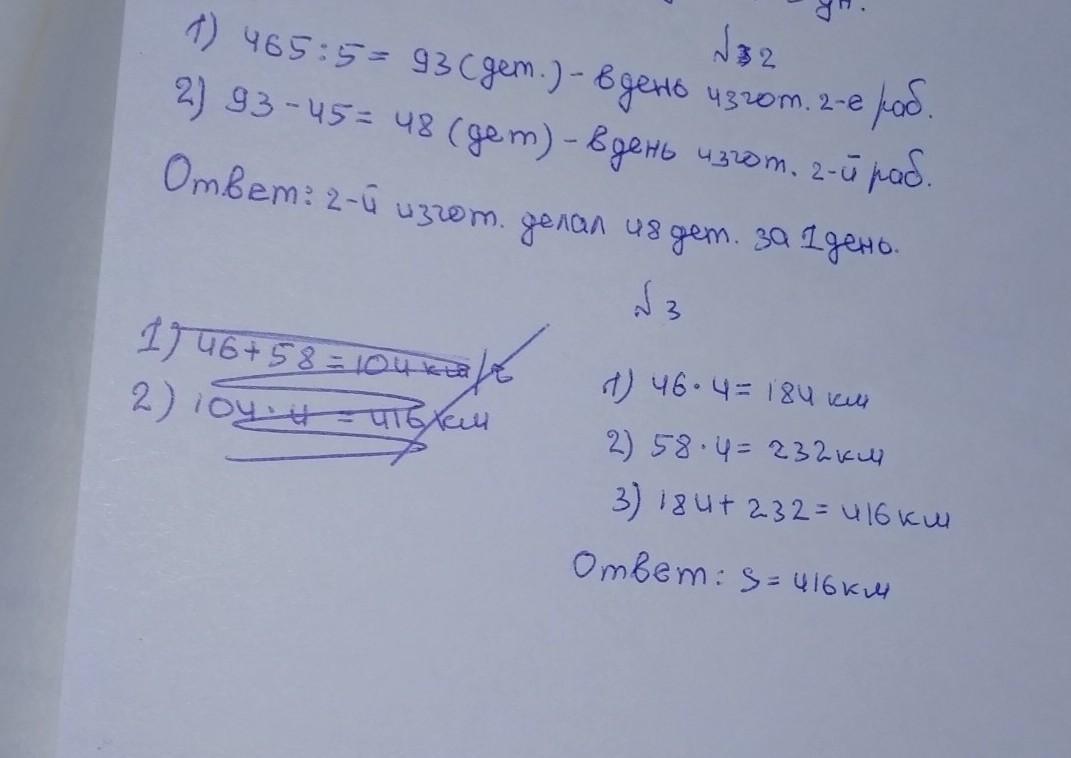 ун.
№ 2
1) 465:5= 93(дет.)-в день изгот. 2-е раб.
2) 93-45= 48 (дет)-в день изгот. 2-й раб.
Ответ: 2-й изгот. делал 48 дет. за 1 день.
№ 3
1) 46+58=104 км/ч
2) 104·4=416 км
1) 46·4=184 км
2) 58·4=232 км
3) 184+232=416 км
Ответ: S=416 км